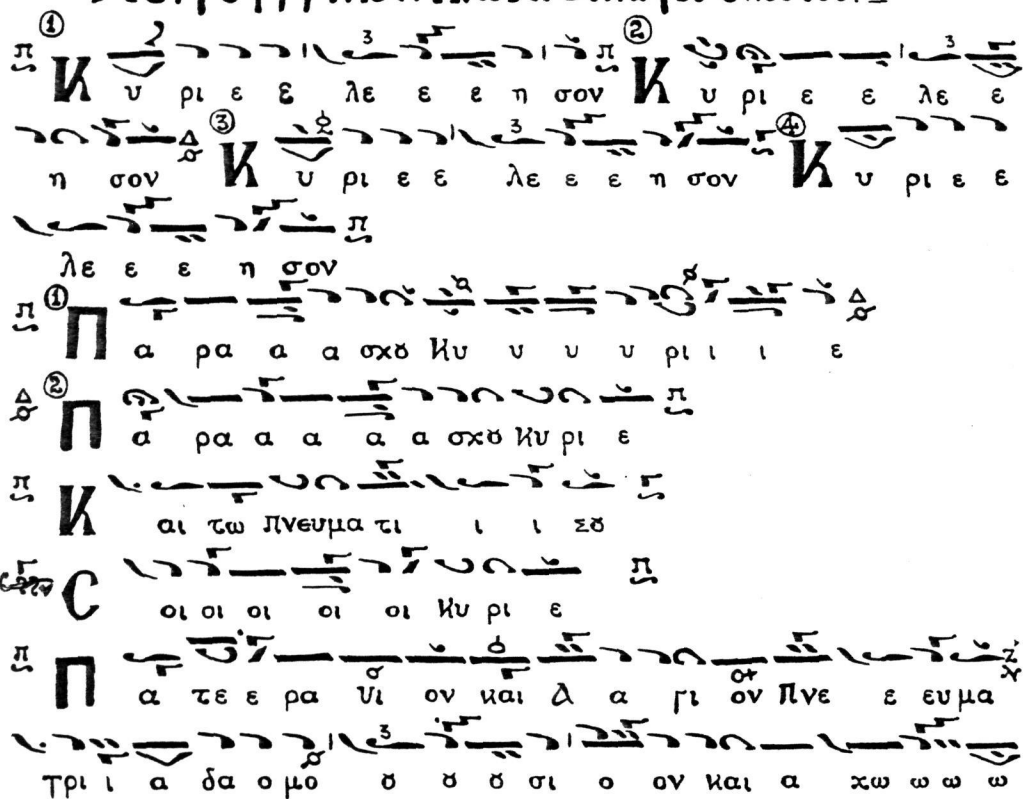 ① Κ υ ρι ε ε λε ε ε η σον ② Κ υ ρι ε ε λε ε
η σον ③ Κ υ ρι ε ε λε ε ε η σον ④ Κ υ ρι ε ε
λε ε ε η σον
① Π α ρα α α σχȣ Κυ υ υ υ ρι ι ι ε
② Π α ρα α α α α σχȣ Κυ ρι ε
Κ αι τω Πνευμα τι ι ι Σȣ
Σ οι οι οι οι οι Κυ ρι ε
Π α τε ε ρα Υι ον και Α α γι ον Πνε ε ευ μα
τρι ι α δα ο μο ȣ ȣ ȣ σι ο ον και α χω ω ω ω